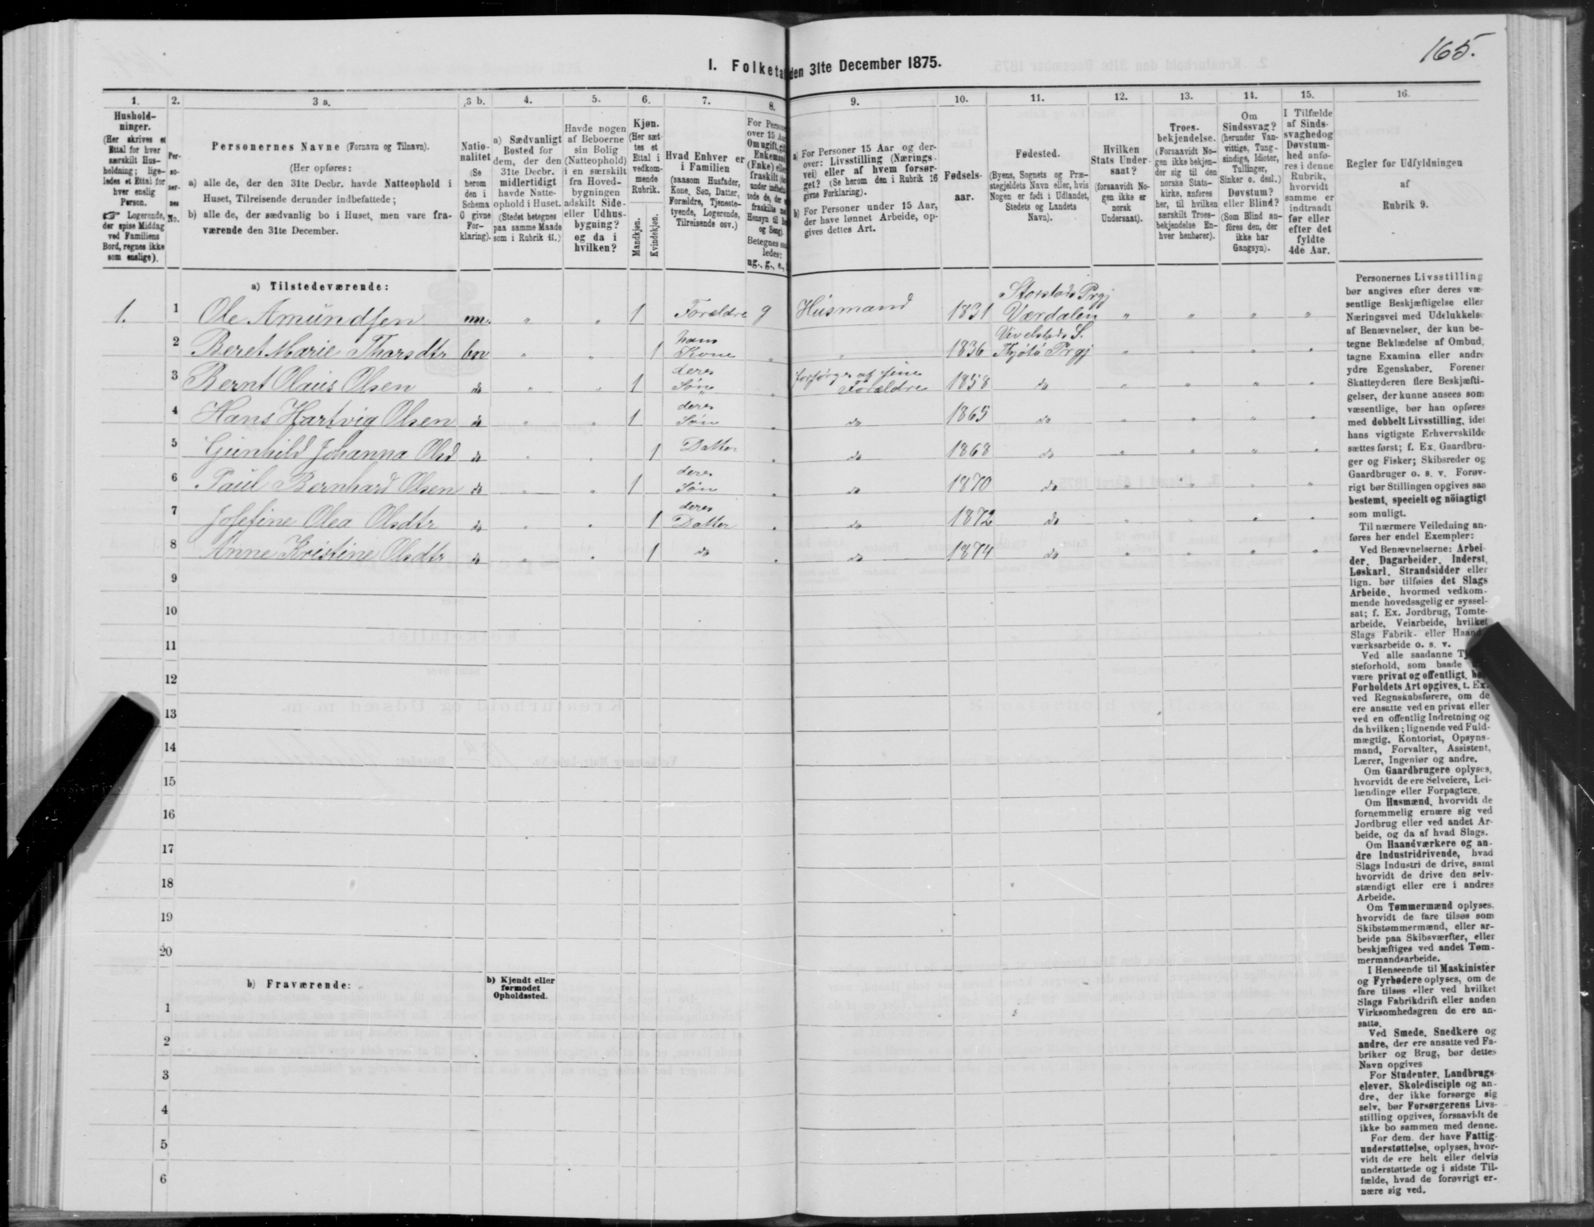 165.
I. Folketa den 31te December 1875.
1. 2. 3 a. 3 b. 4. 5. 6. 7. 8. 9. 10. 11. 12. 13. 14. 15. 16.
Hushold-
ninger.
(Her skrives et
Ettal for hver
særskilt Hus-
holdning; lige-
ledes et Ettal for
hver enslig
Person.
Logerende,
der spise Middag
ved Familiens
Bord, regnes ikke
som enslige).
Per-
so-
ner-
nes
No.
Personernes Navne (Fornavn og Tilnavn).
(Her opføres:
a) alle de, der den 31te Decbr. havde Natteophold i
Huset, Tilreisende derunder indbefattede;
b) alle de, der sædvanlig bo i Huset, men vare fra-
værende den 31te December.
Natio-
nalitet
(Se
herom
den i
Schema
O givne
For-
klaring).
a) Sædvanligt
Bosted for
dem, der den
31te Decbr.
midlertidigt
havde Natte-
ophold i Huset.
(Stedet betegnes
paa samme Maade
som i Rubrik 11.)
Havde nogen
af Beboerne
sin Bolig
(Natteophold)
i en særskilt
fra Hoved-
bygningen
adskilt Side-
eller Udhus-
bygning?
og da i
hvilken?
Kjøn.
(Her sæt-
tes et
Ettal i
vedkom-
mende
Rubrik.
Mandkjøn.
Kvindekjøn.
Hvad Enhver er
i Familien
(saasom Husfader,
Kone, Søn, Datter,
Forældre, Tjeneste-
tyende, Logerende,
Tilreisende osv.)
For Persone
over 15 Aar
Om ugift, gift
Enkemand
(Enke) eller
fraskilt
Betegnes saa
ledes:
ug., g., e.,
a) For Personer 15 Aar og der-
over: Livsstilling (Nærings-
vei) eller af hvem forsør-
get? (Se herom den i Rubrik 16
givne Forklaring).
b) For Personer under 15 Aar,
der have lønnet Arbeide, op-
gives dettes Art.
Fødsels-
aar.
Fødested.
(Byens, Sognets og Præ-
stegjeldets Navn eller, hvis
Nogen er født i Udlandet,
Stedets og Landets
Navn).
Hvilken
Stats Under-
saat?
(forsaavidt No-
gen ikke er
norsk
Undersaat).
Troes-
bekjendelse.
(Forsaavidt No-
gen ikke bekjen-
der sig til den
norske Stats-
kirke, anføres
her, til hvilken
særskilt Troes-
bekjendelse En-
hver henhører).
Om
Sindssvag?
(herunder Van-
vittige, Tung-
sindige, Idioter,
Tullinger,
Sinker o. desl.)
Døvstum?
eller Blind?
(Som Blind an-
føres den, der
ikke har
Gangsyn).
I Tilfælde
af Sinds-
svaghed og
Døvstum-
hed anfø-
res i denne
Rubrik,
hvorvidt
samme er
indtraadt
før eller
efter det
fyldte
4de Aar.
Regler for Udfyldningen
af
Rubrik 9.
a) Tilstedeværende:
1. 1 Ole Amundsen nn. " " 1 Forældre g Husmand 1831 Storstads Prgj Værdalen " " " "
2 Beret Marie Tharsdtr bov " " 1 hans Kone " " 1836 Vevelstads S. Thjøtø Prgj " " " "
3 Bernt Olaus Olsen do " " 1 deres Søn " forsørges af sine Forældre 1858 do " " " "
4 Hans Hartvig Olsen do " " 1 deres Søn " do 1865 do " " " "
5 Gunhild Johanna Olsd do " " 1 Datter " do 1868 do " " " "
6 Paul Bernhard Olsen do " " 1 deres Søn " do 1870 do " " " "
7 Josefine Olea Olsdtr do " " 1 deres Datter " do 1872 do " " " "
8 Anne Kristine Olsdtr do " " 1 do " do 1874 do " " " "
9
10
11
12
13
14
15
16
17
18
19
20
b) Fraværende:
b) Kjendt eller
formodet
Opholdssted.
1
2
3
4
5
6
Personernes Livsstilling
bør angives efter deres væ-
sentlige Beskjæftigelse eller
Næringsvei med Udelukkelse
af Benævnelser, der kun be-
tegne Beklædelse af Ombud,
tagne Examina eller andre
ydre Egenskaber. Forener
Skatteyderen flere Beskjæfti-
gelser, der kunne ansees som
væsentlige, bør han opføres
med dobbelt Livsstilling, idet
hans vigtigste Erhvervskilde
sættes først; f. Ex. Gaardbru-
ger og Fisker; Skibsreder og
Gaardbruger o. s. v. Forøv-
rigt bør Stillingen opgives saa
bestemt, specielt og nøiagtigt
som muligt.
Til nærmere Veiledning an-
føres her endel Exempler:
Ved Benævnelserne: Arbei-
der, Dagarbeider, Inderst,
Løskarl, Strandsidder eller
lign. bør tilføies det Slags
Arbeide, hvormed vedkom-
mende hovedsagelig er syssel-
sat; f. Ex. Jordbrug, Tomte-
arbeide, Veiarbeide, hvilket
Slags Fabrik- eller Haand-
værksarbeide o. s. v.
Ved alle saadanne
steforhold, som baade
være privat og offentligt,
Forholdets Art opgives, t. Ex.
ved Regnskabsførere, om de
ere ansatte ved en privat eller
ved en offentlig Indretning og
da hvilken; lignende ved Fuld-
mægtig, Kontorist, Opsyns-
mand, Forvalter, Assistent,
Lærer, Ingeniør og andre.
Om Gaardbrugere oplyses,
hvorvidt de ere Selveiere, Lei-
lændinge eller Forpagtere.
Om Husmænd, hvorvidt de
fornemmelig ernære sig ved
Jordbrug eller ved andet Ar-
beide, og da af hvad Slags.
Om Haandværkere og an-
dre Industridrivende, hvad
Slags Industri de drive, samt
hvorvidt de drive den selv-
stændigt eller ere i andres
Arbeide.
Om Tømmermænd oplyses,
hvorvidt de fare tilsøs som
Skibstømmermænd, eller ar-
beide paa Skibsværfter, eller
beskjæftiges ved andet Tøm-
mermandsarbeide.
I Henseende til Maskinister
og Fyrbødere oplyses, om de
fare tilsøs eller ved hvilket
Slags Fabrikdrift eller anden
Virksomhedsgren de ere an-
satte.
Ved Smede, Snedkere og
andre, der ere ansatte ved Fa-
briker og Brug, bør dettes
Navn opgives
For Studenter, Landbrugs-
elever, Skoledisciple og an-
dre, der ikke forsørge sig
selv, bør Forsørgerens Livs-
stilling opgives, forsaavidt de
ikke bo sammen med denne.
For dem, der have Fattig-
understøttelse, oplyses, hvor-
vidt de ere helt eller delvis
understøttede og i sidste Til-
fælde, hvad de forøvrigt er-
nære sig ved.